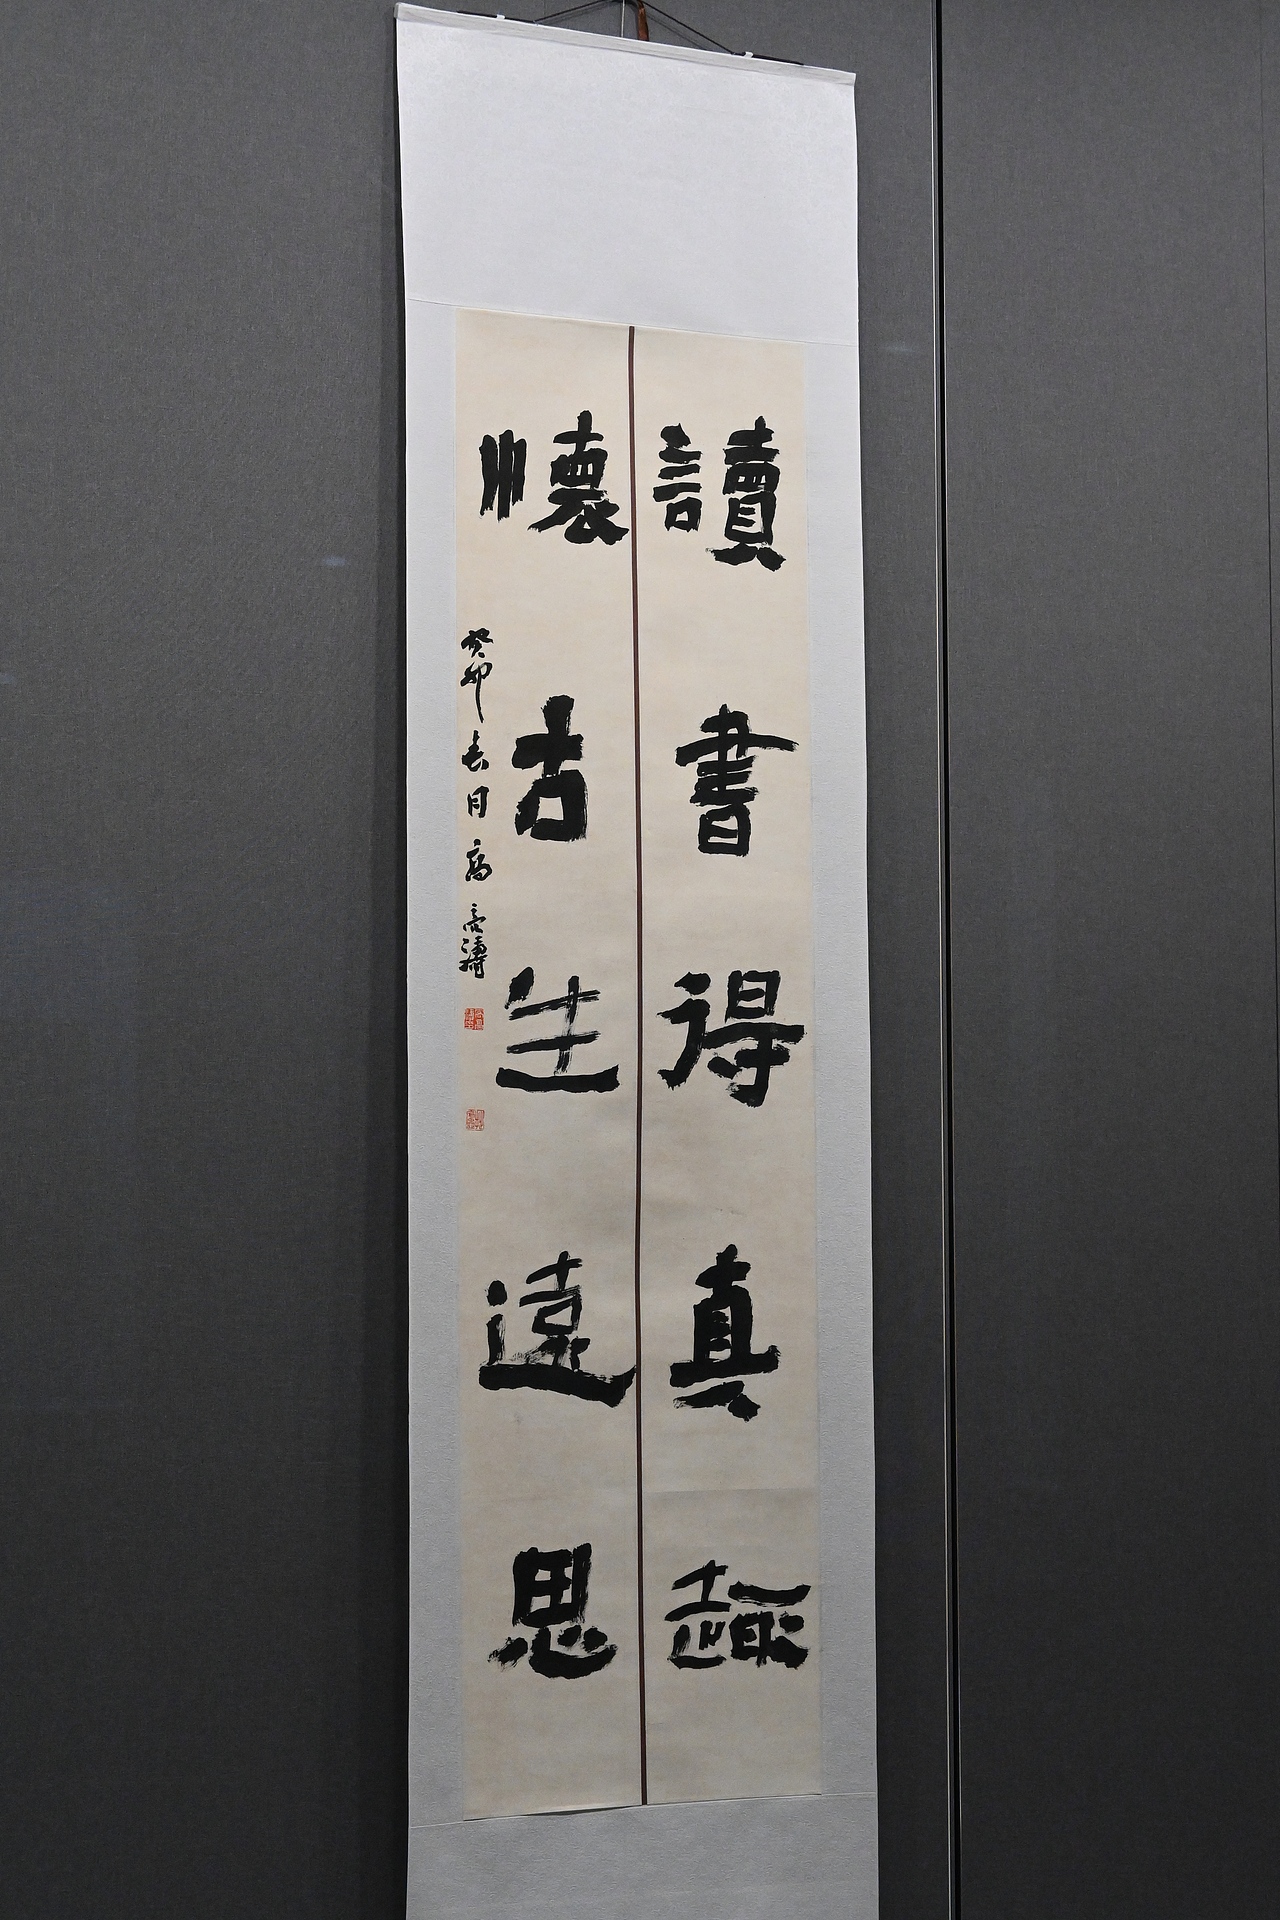 讀書得真趣
懷古生遠思
癸卯春月高亮濤